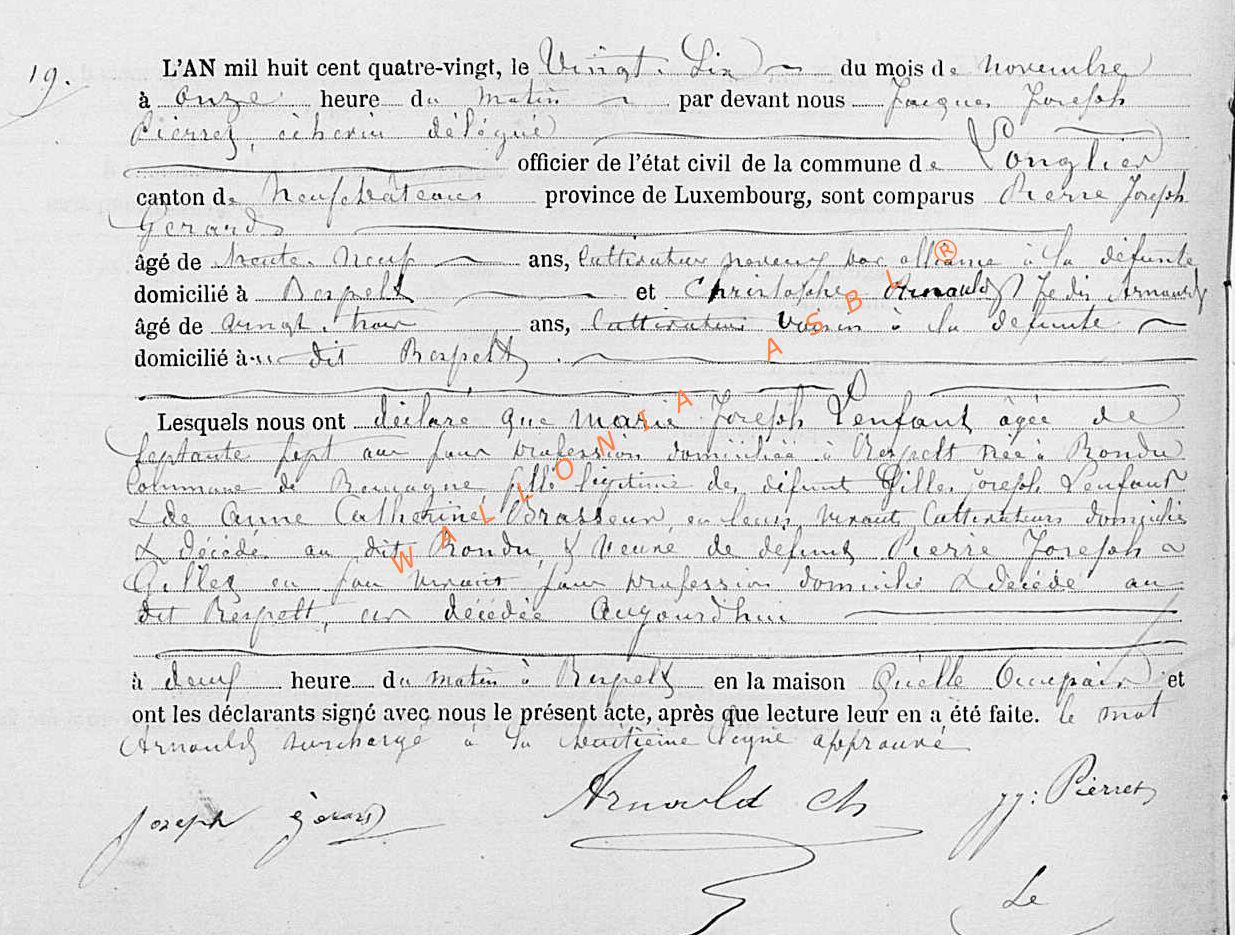 19.
L'AN mil huit cent quatre-vingt, le Vingt. Six du mois de novembre
à onze heure du matin par devant nous Jacques Joseph
Pierret, échevin délégué
officier de l'état civil de la commune de Longlier
canton de Neufchâteau province de Luxembourg, sont comparus Pierre Joseph
Gerard
âgé de trente. Neuf ans, Cultivateur neveux par alliance à la défunte
domicilié à Respelt et Christophe Arnould Je dis Arnould
âgé de vingt. trois ans, Cultivateur voisin à la défunte.
domicilié au dit Respelt.
Lesquels nous ont déclaré que marie Joseph Lenfant âgée de
Septante sept ans sans profession domiciliée à Respelt née à Rondu
Commune de Remagne, fille légitime de défunt Gille joseph Lenfant
& de Anne Catherine Brasseur, en leurs vivant Cultivateurs domiciliés
& décédé au dit Rondu, & Veuve de défunt Pierre Joseph
Gillet en son vivant sans profession domicilié & décédé au
dit Respelt, est décédée Aujourd'hui
à deux heure du matin à Respelt en la maison Qu'elle Occupait et
ont les déclarants signé avec nous le présent acte, après que lecture leur en a été faite. le mot
Arnould surchargé à la huitième ligne approuvé
Joseph Gérard Arnould Ch jj: Pierret
Le
WALLONIA ASBL®